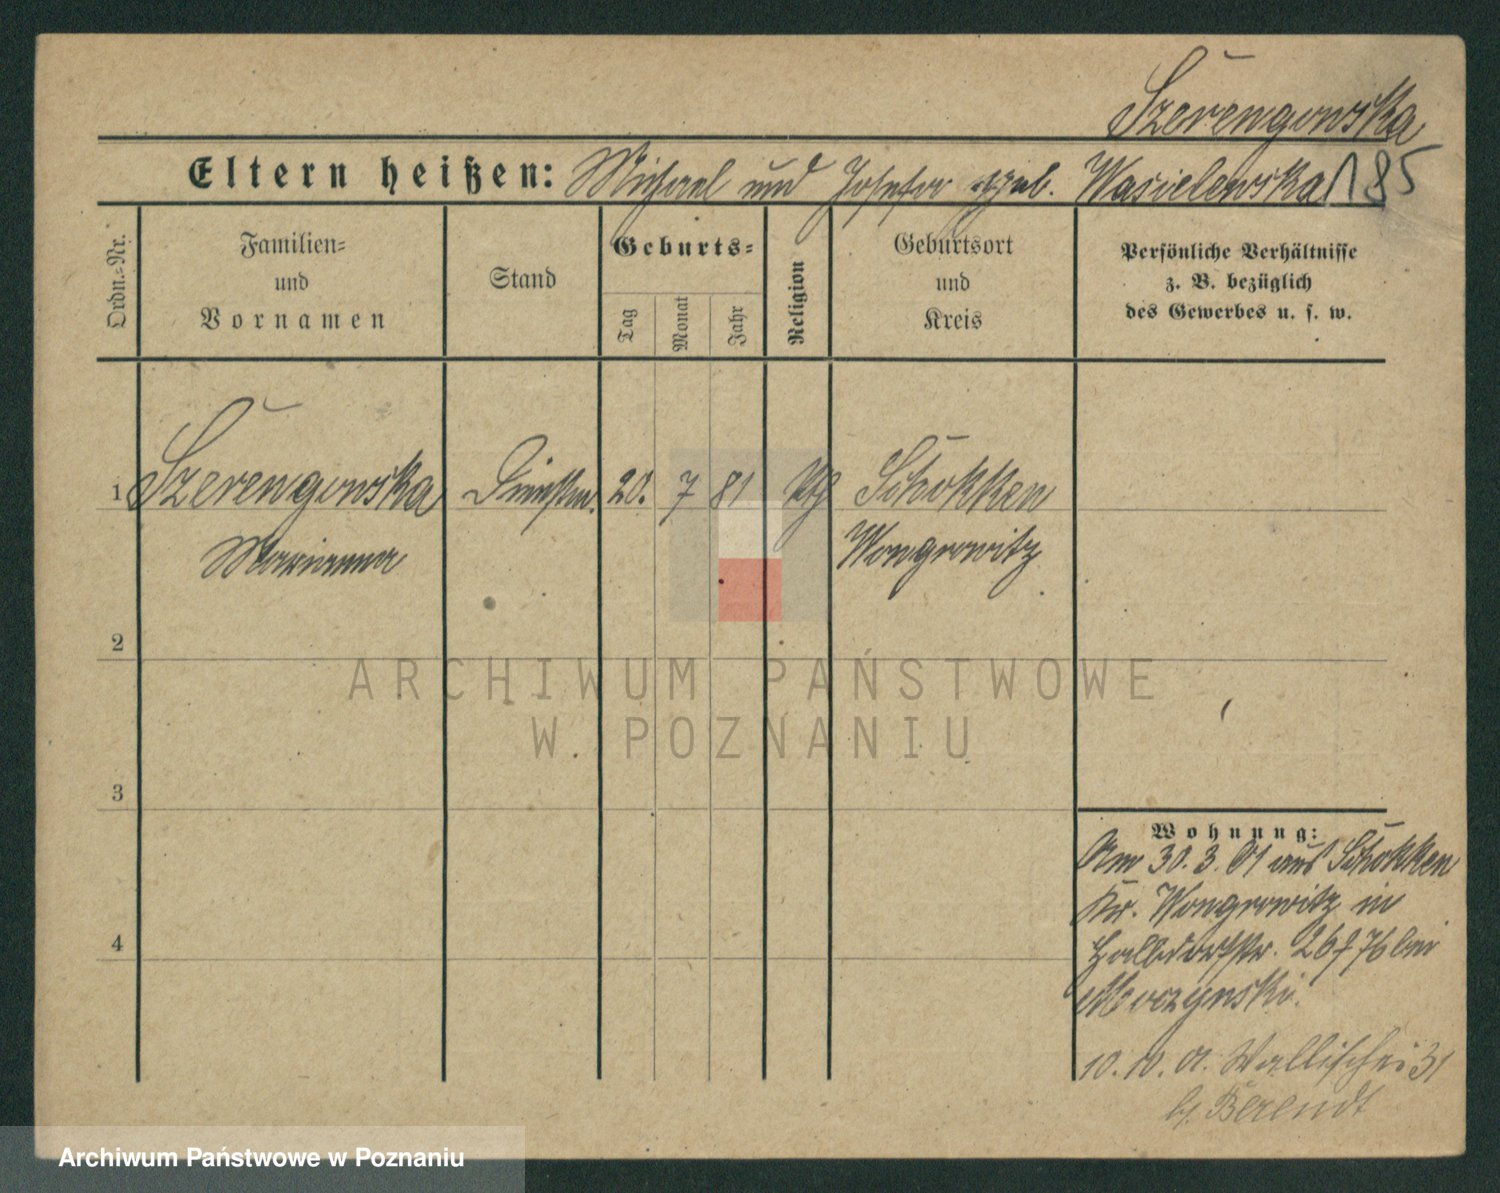 Szerengowska
Eltern heißen: Michael und Josefa geb. Wasielewska 185
Ordn.-Nr.
Familien-
und
Vornamen
Stand
Geburts-
Tag
Monat
Jahr
Religion
Geburtsort
und
Kreis
Persönliche Verhältnisse
z. B. bezüglich
des Gewerbes u. s. w.
1 Szerengowska Dienstm. 20. 7 81 kth Schokken
Marianna Wongrowitz
2
ARCHIWUM PAŃSTWOWE
W POZNANIU
3
4
Wohnung:
Am 30.3.01 aus Schokken
Kr. Wongrowitz in
Halbdorfstr. bei
10.10. a. Wallischei 31
b. Berendt
Archiwum Państwowe w Poznaniu